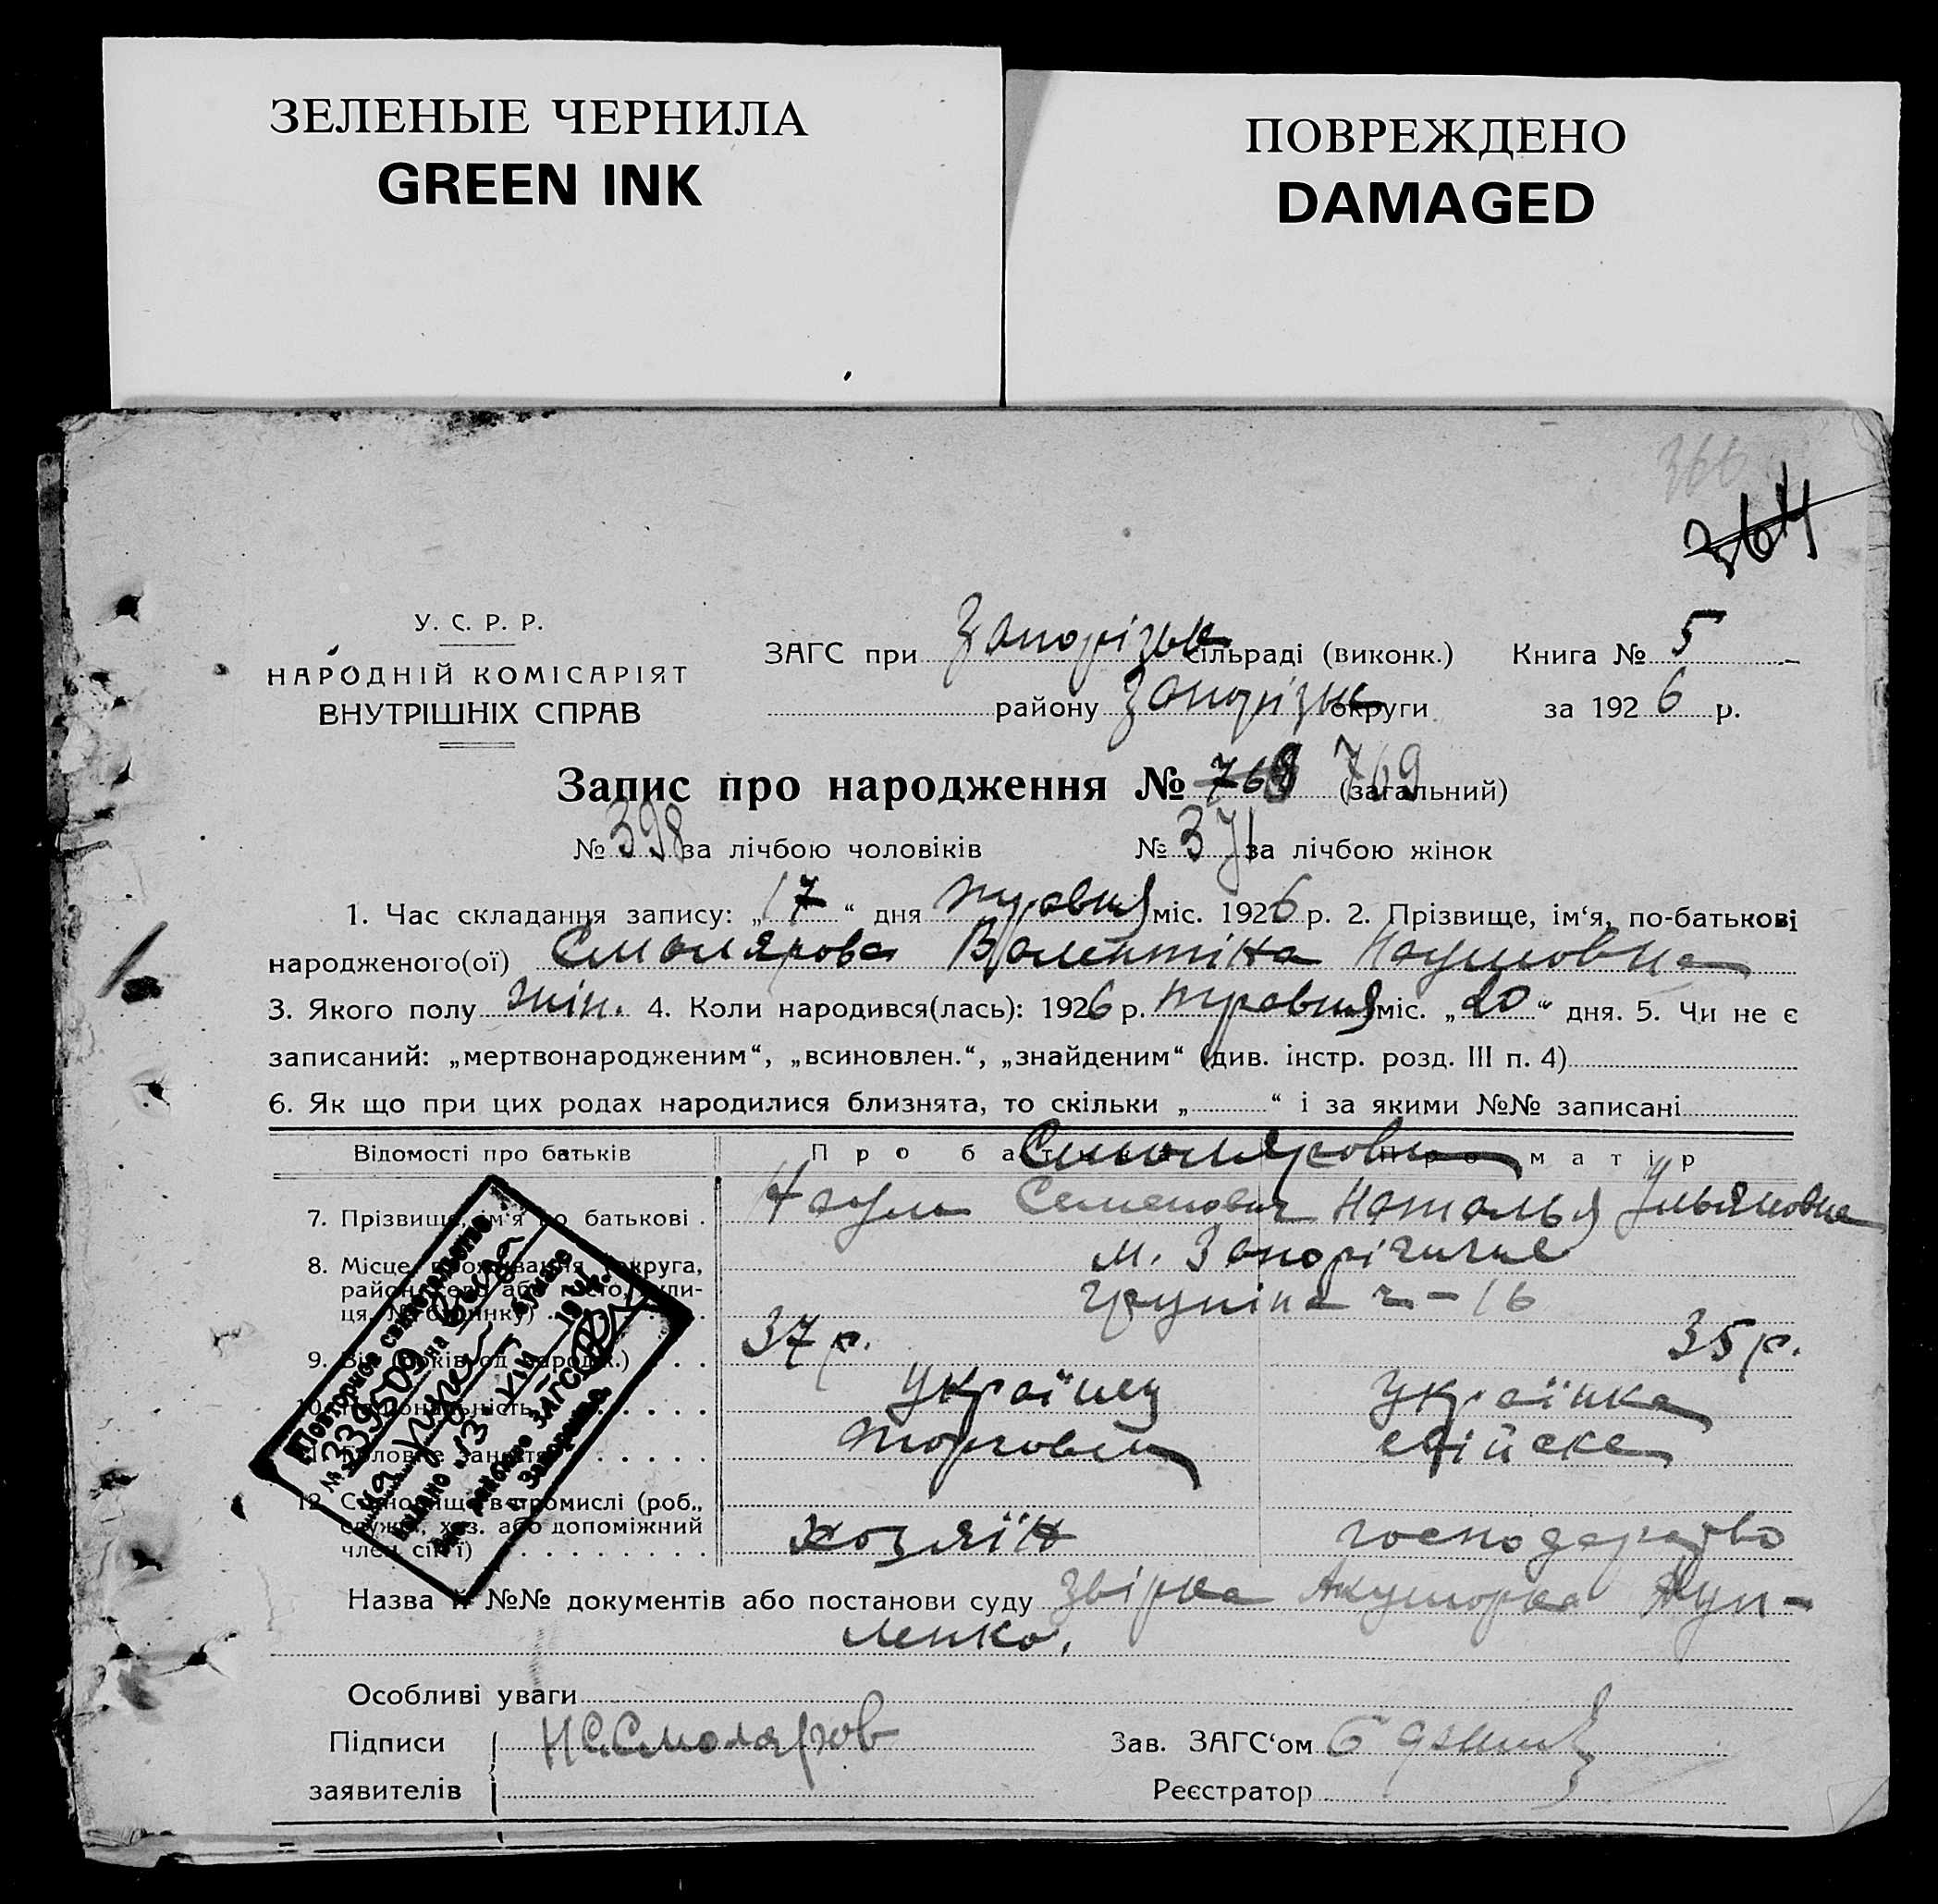 ЗЕЛЕНЫЕ ЧЕРНИЛА
GREEN INK
ПОВРЕЖДЕНО
DAMAGED
366
364
У. С. Р. Р.
НАРОДНІЙ КОМІСАРІЯТ
ВНУТРІШНІХ СПРАВ
ЗАГС при Запорізьк сільраді (виконк.) Книга № 5
району Запорізьк округи за 1926 р.
Запис про народження № 769 769 (загальний)
№ 398 за лічбою чоловіків № 371 за лічбою жінок
1. Час складання запису: „17“ дня травня міс. 1926 р. 2. Прізвище, ім‘я, по-батькові
народженого(ої) Смолярова Валентіна Наумовна
3. Якого полу жін. 4. Коли народився(лась): 1926 р. травня міс. „20“ дня. 5. Чи не є
записаний: „мертвонародженим“, „всиновлен.“, „знайденим“ (див. інстр. розд. III п. 4)
6. Як що при цих родах народилися близнята, то скільки „ “ і за якими №№ записані
Відомості про батьків Про батька Про матір
Смолярови
7. Прізвище, ім‘я по батькові Наум Семенович Наталья Ульяновна
8. Місце проживання (округа, м. Запоріжжє
район, село або місто, вули-
ця, № будинку) 16
9. Вік (років од народж.) 37 р. 35 р.
10. Національність Українец Українка
11. Головне заняття торговля
12. Становище в промислі (роб.,
служб., хаз. або допоміжний
член сім‘ї) хозяїн господарство
Повторное свидетельство
№ 339509 на
выдано „13“ VIII
ЗАГС
г. Запорожье
Назва й №№ документів або постанови суду Звірка Акушорка
ленко.
Особливі уваги
Підписи Н.С.Смоляров Зав. ЗАГС‘ом
заявителів Реєстратор